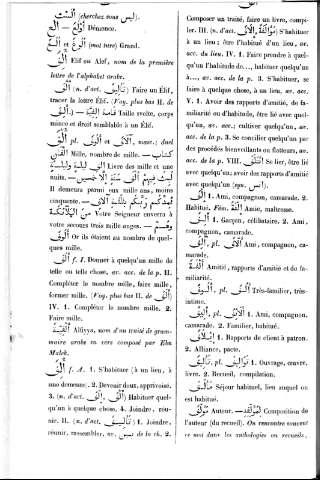 أَلَسْتُ (cherchez sous ليس).
أَوْلَعُ — Démence.
أَلِغٌ et أَلُغٌ (mot turc) Grand.
أَلِفٌ Elif ou Alef, nom de la première
lettre de l'alphabet arabe.
أَلِفَ (n. d'act.) Faire un Élif,
tracer la lettre Élif. (Voy. plus bas II. de
أَلِفَ) Taille svelte, corps
mince et droit semblable à un Élif.
أَلْفٌ pl. أُلُوفٌ et آلَافٌ, masc.; duel
أَلْفَيْنِ Mille, nombre de mille. — كتاب
أَلْف لَيْلَة وَلَيْلَة Livre des mille et une
nuits. —
Il demeura parmi eux mille ans, moins
cinquante. —
Votre Seigneur enverra à
votre secours trois mille anges. —
أُلُوفٌ Or ils étaient au nombre de quel-
ques mille.
أَلَفَ f. I. Donner à quelqu'un mille de
telle ou telle chose, av. acc. de la p. II.
Compléter le nombre mille, faire mille,
former mille. (Voyez plus bas II. de أَلِفَ)
IV. 1. Compléter le nombre mille. 2.
Faire mille.
أَلْفِيَّة Alfiyya, nom d'un traité de gram-
maire arabe en vers composé par Ebn
Malek.
أَلِفَ f. A. 1. S'habituer (à un lieu, à
une demeure). 2. Devenir doux, apprivoisé.
3. (n. d'act. إِلْفٌ, أَلْفٌ) Habituer quel-
qu'un à quelque chose. 4. Joindre, réu-
nir. II. (n. d'act. تَأْلِيفٌ) 1. Joindre,
réunir, rassembler, av. بين de la ch. 2.
Composer un traité, faire un livre, compi-
ler. III. (n. d'act. مُؤَالَفَةٌ, إِلَافٌ) S'habituer
à un lieu; être l'habitué d'un lieu, av.
acc. du lieu. IV. 1. Faire prendre à quel-
qu'un l'habitude de..., habituer quelqu'un
à..., av. acc. de la p. 3. S'habituer, se
faire à quelque chose, à un lieu, av. acc.
V. 1. Avoir des rapports d'amitié, de fa-
miliarité ou d'habitude, être lié avec quel-
qu'un, av. acc.; cultiver quelqu'un, av.
acc. de la p. 3. Se concilier quelqu'un par
des procédés bienveillants ou flatteurs, av.
acc. de la p. VIII. إِئْتَلَفَ Se lier, être lié
avec quelqu'un; avoir des rapports d'amitié
avec quelqu'un (syn. أنس).
إِلْفٌ 1. Ami, compagnon, camarade. 2.
Habitué. Fém. إِلْفَةٌ Amie, maîtresse.
أَلِفٌ 1. Garçon, célibataire. 2. Ami,
compagnon, camarade.
آلِفٌ, pl. أُلَّافٌ Ami, compagnon, ca-
marade.
أُلْفَةٌ Amitié, rapports d'amitié et de fa-
miliarité.
أَلُوفٌ, pl. أُلُفٌ Très-familier, très-
intime.
أَلِيفٌ, pl. أَلَائِفُ 1. Ami, compagnon,
camarade. 2. Familier, habitué.
إِيلَافٌ 1. Rapports de client à patron.
2. Alliance, pacte.
تَأْلِيفٌ, pl. تَوَالِيفُ 1. Ouvrage, œuvre,
livre. 2. Recueil, compilation.
مَأْلَفٌ Séjour habituel, lieu auquel on
est habitué.
مُؤَلِّفٌ Auteur. — لِمُؤَلِّفِهِ Composition de
l'auteur (du recueil). On rencontre souvent
ce mot dans les anthologies ou recueils,